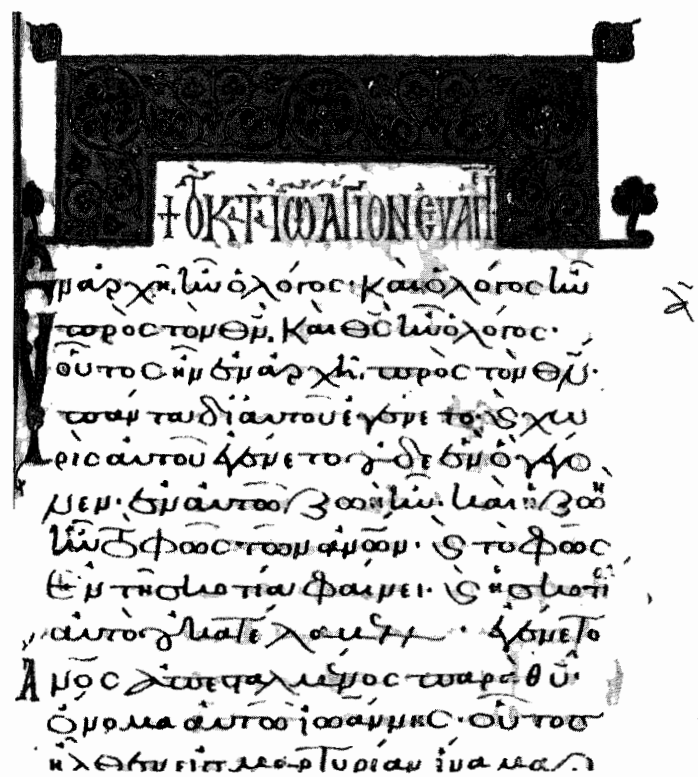 + ΤΟ ΚΤ ΙΩ ΑΓΙΟΝ ΕΥΑΓΓ
Ἐν ἀρχῆ ἦν ὁ λόγος· καὶ ὁ λόγος ἦν
πρὸς τὸν θν̅, καὶ θς̅ ἦν ὁ λόγος·
οὗτος ἦν ἐν ἀρχῆ πρὸς τὸν θν̅·
πάντα δι αὐτοῦ ἐγένετο· ϗ χω
ρὶς αὐτοῦ ἐγένετο οὐδὲ ἓν ὃ γέγο
νεν· ἐν αὐτῶ ζωὴ ἦν· καὶ ἡ ζωὴ
ἦν τὸ φῶς τῶν ἀνω̅ν· ϗ τὸ φῶς
ἐν τῆ σκοτία φαίνει· ϗ ἡ σκοτία
αὐτὸ οὐ κατέλαβεν· ἐγένετο
ἄνο̅ς ἀπεσταλμένος παρὰ θυ̅·
ὄνομα αὐτῶ ἰωάννης· οὗτος
ἦλθεν εἰς μαρτυρίαν ἵνα μαρ